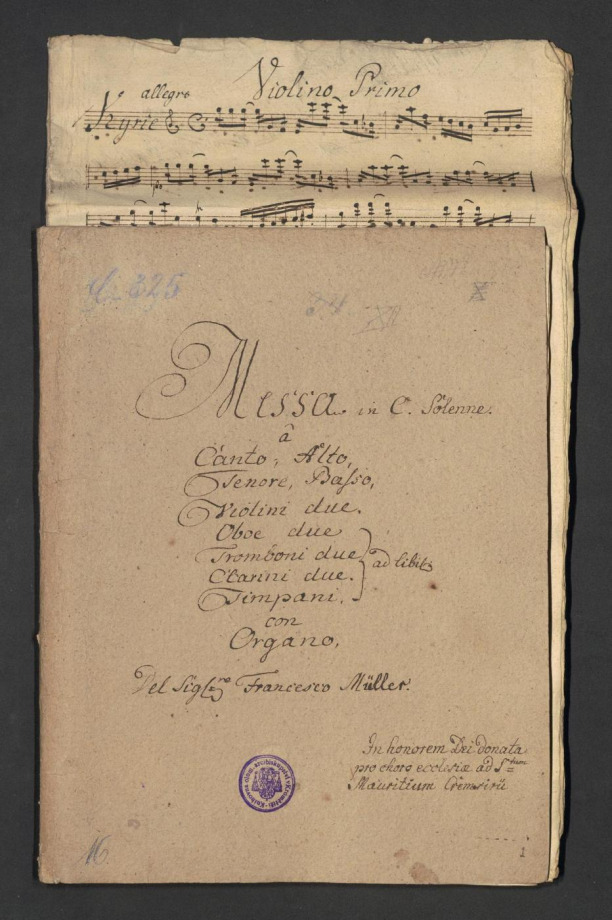 Violino Primo
allegro
Kyrie
Messa in C. Solenne.
â
Canto, Alto,
Tenore, Basso,
Violini due.
Oboe due
Tromboni due
ad libit
Clarini due.
Timpani.
con
Organo.
Del Sigre Francesco Müller.
In honorem Dei donata
pro choro ecclesiæ ad Stum
Mauritium Cremsirii
1